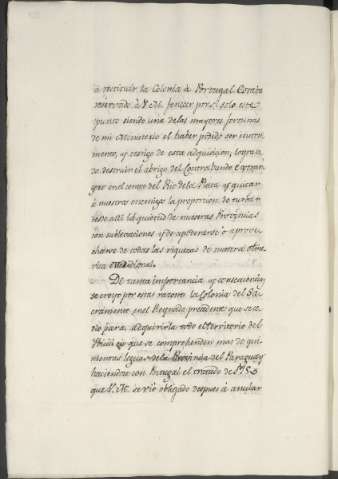 à restituir la Colonia à Portugal. Estaba
reservado à V. M. fenecer por si solo este
punto siendo una de las mayores fortunas
de mi Ministerio el haber podido ser instru-
mento, y testigo de esta adquisicion, logran-
do destruir el abrigo del Contrabando
que en el centro del Rio de la Plata, y quitar
à nuestros enemigos la proporcion de turbar
desde alli la quietud de nuestras Provincias
con sublevaciones y de apoderarse ò aprove-
charse de todas las riquezas de nuestra Ame-
rica meridional.
De tanta importancia y consecuencia
se creyò por estas razones la Colonia del Sa-
cramento en el Reynado precedente que se ce-
diò para adquirirla todo el territorio del
Ibicui en que se comprehenden mas de qui-
nientas leguas de la Provincia del Paraguay
haciendose con Portugal el tratado de 1750
que V. M. se viò obligado despues à anular